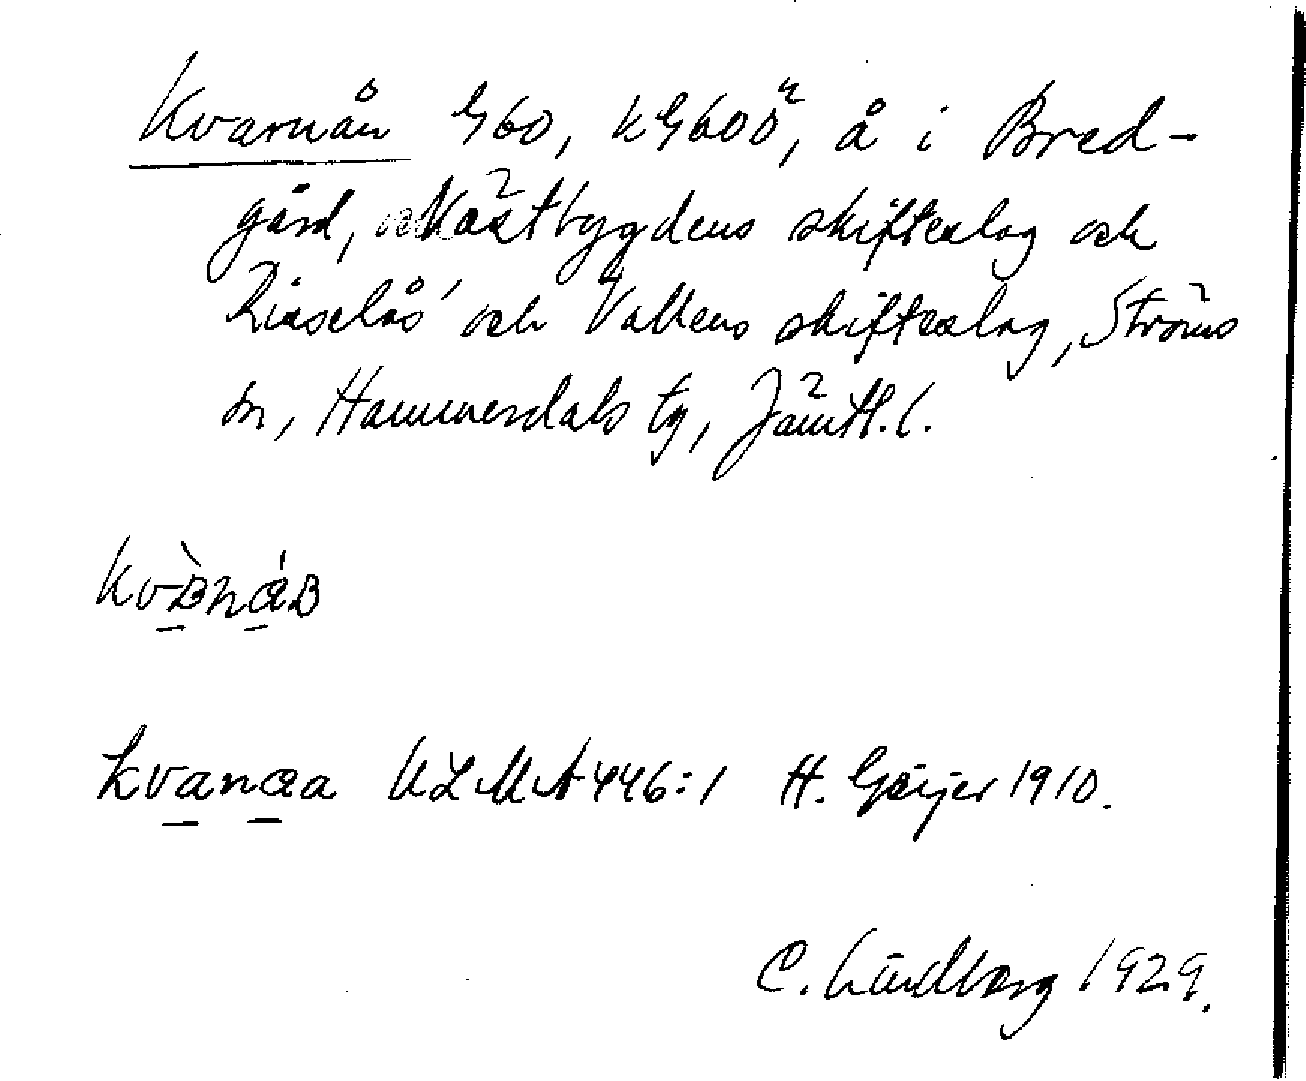 Kvarnån G60, kG600ⁿ, å i Bred-
gård, Västbygdens skifteslag och
och Vallens skifteslag, Ströms
sn, Hammerdals tg, Jämtl. l.
kvanæa ULMA 446:1 H. Geijer 1910.
C. Lindberg 1929.